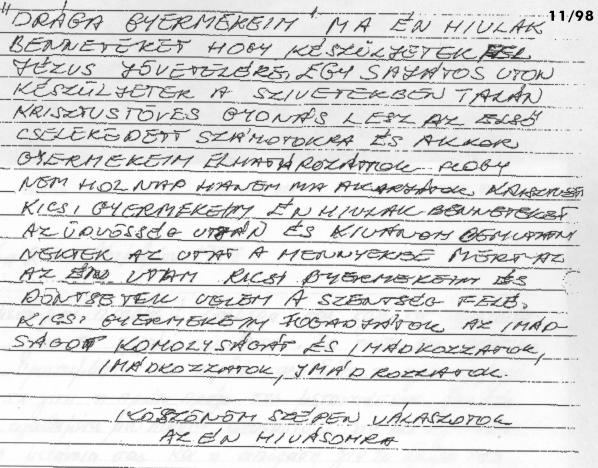 11/98
"DRÁGA GYERMEKEIM" MA ÉN HIVLAK
BENNETEKET HOGY KÉSZÜLJETEK FEL
JÉZUS JÖVETELÉRE, EGY SAJÁTOS UTON
KÉSZÜLJETEK A SZIVETEKBEN TALÁN
KRISZTUSTÖVES GYONÁS LESZ AZ ELSŐ
CSELEKEDETT SZÁMOTOKRA ÉS AKKOR
GYERMEKEIM ELHATÁROZÁTTOK HOGY
NEM HOLNAP HANEM MA AKARJÁTOK KRISZTUST
KICSI GYERMEKEIM ÉN HIVLAK BENNETEKET
AZ ÜDVÖSSÉG UTJÁN ÉS KIVÁNOM BEMUTATNI
NEKTEK AZ UTAT A MENNYEKBE MERT AZ
AZ ÉN UTAM KICSI GYERMEKEIM ÉS
DÖNTSETEK VELEM A SZENTSÉG FELÉ.
KICSI GYERMEKEIM FOGADJÁTOK AZ IMÁD
SÁGOT KOMOLYSÁGÁT ÉS IMÁDKOZZATOK,
IMÁDKOZZATOK, IMÁDKOZZATOK.
KÖSZÖNÖM SZÉPEN VÁLASZOTOK
AZ ÉN HIVÁSOMRA